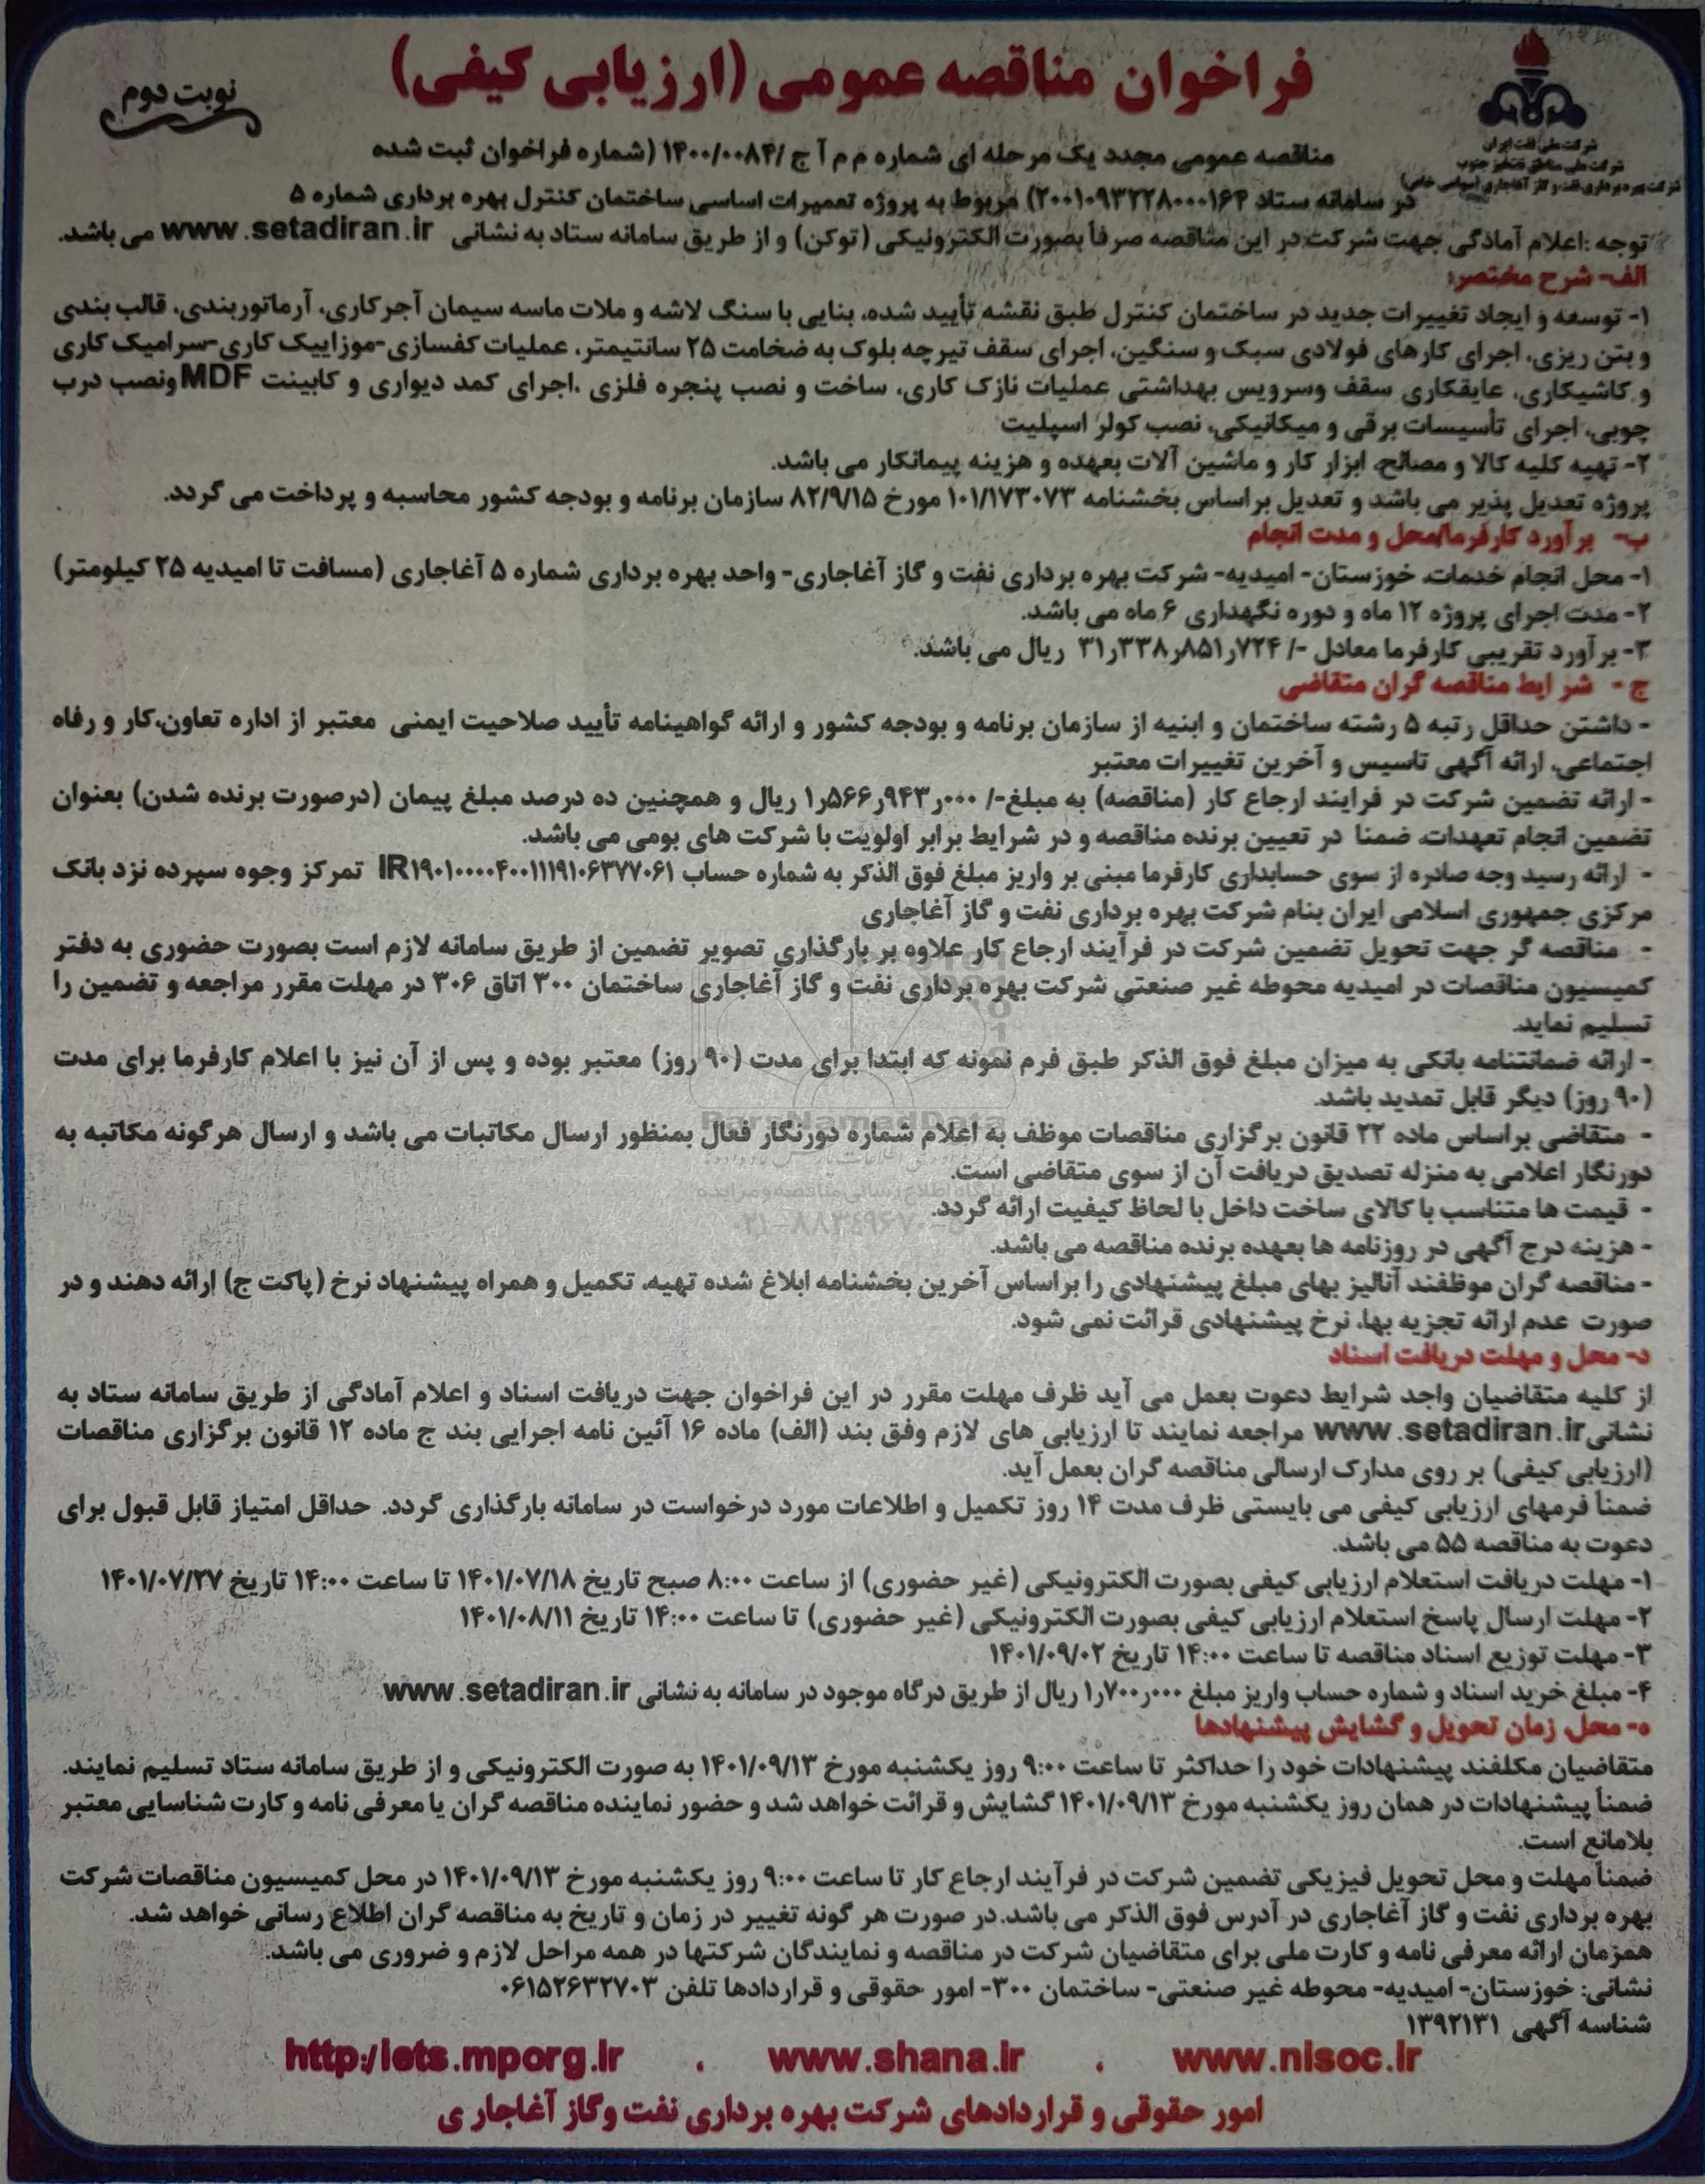 فراخوان مناقصه عمومی (ارزیابی کیفی)
نوبت دوم
شرکت ملی نفت ایران
شرکت ملی مناطق نفتخیز جنوب
شرکت بهره برداری نفت و گاز آغاجاری (سهامی خاص)
مناقصه عمومی مجدد یک مرحله ای شماره م م آ ج /۱۴۰۰/۰۰۸۴ (شماره فراخوان ثبت شده
در سامانه ستاد ۲۰۰۱۰۹۳۲۲۸۰۰۰۱۶۴) مربوط به پروژه تعمیرات اساسی ساختمان کنترل بهره برداری شماره ۵
توجه :اعلام آمادگی جهت شرکت در این مناقصه صرفاً بصورت الکترونیکی (توکن) و از طریق سامانه ستاد به نشانی www.setadiran.ir می باشد.
الف- شرح مختصر:
۱- توسعه و ایجاد تغییرات جدید در ساختمان کنترل طبق نقشه تأیید شده، بنایی با سنگ لاشه و ملات ماسه سیمان آجرکاری، آرماتوربندی، قالب بندی
و بتن ریزی، اجرای کارهای فولادی سبک و سنگین، اجرای سقف تیرچه بلوک به ضخامت ۲۵ سانتیمتر، عملیات کفسازی-موزاییک کاری-سرامیک کاری
و کاشیکاری، عایقکاری سقف وسرویس بهداشتی عملیات نازک کاری، ساخت و نصب پنجره فلزی ،اجرای کمد دیواری و کابینت MDF ونصب درب
چوبی، اجرای تأسیسات برقی و میکانیکی، نصب کولر اسپلیت
۲- تهیه کلیه کالا و مصالح، ابزار کار و ماشین آلات بعهده و هزینه پیمانکار می باشد.
پروژه تعدیل پذیر می باشد و تعدیل براساس بخشنامه ۱۰۱/۱۷۳۰۷۳ مورخ ۸۲/۹/۱۵ سازمان برنامه و بودجه کشور محاسبه و پرداخت می گردد.
ب- برآورد کارفرما/محل و مدت انجام
۱- محل انجام خدمات، خوزستان- امیدیه- شرکت بهره برداری نفت و گاز آغاجاری- واحد بهره برداری شماره ۵ آغاجاری (مسافت تا امیدیه ۲۵ کیلومتر)
۲- مدت اجرای پروژه ۱۲ ماه و دوره نگهداری ۶ ماه می باشد.
۳- برآورد تقریبی کارفرما معادل -/ ۷۲۴ر۸۵۱ر۳۳۸ر۳۱ ریال می باشد.
ج - شرایط مناقصه گران متقاضی
- داشتن حداقل رتبه ۵ رشته ساختمان و ابنیه از سازمان برنامه و بودجه کشور و ارائه گواهینامه تأیید صلاحیت ایمنی معتبر از اداره تعاون،کار و رفاه
اجتماعی، ارائه آگهی تاسیس و آخرین تغییرات معتبر
- ارائه تضمین شرکت در فرایند ارجاع کار (مناقصه) به مبلغ-/ ۰۰۰ر۹۴۳ر۵۶۶ر۱ ریال و همچنین ده درصد مبلغ پیمان (درصورت برنده شدن) بعنوان
تضمین انجام تعهدات. ضمنا در تعیین برنده مناقصه و در شرایط برابر اولویت با شرکت های بومی می باشد.
- ارائه رسید وجه صادره از سوی حسابداری کارفرما مبنی بر واریز مبلغ فوق الذکر به شماره حساب IR۱۹۰۱۰۰۰۰۴۰۰۱۱۱۹۱۰۶۳۷۷۰۶۱ تمرکز وجوه سپرده نزد بانک
مرکزی جمهوری اسلامی ایران بنام شرکت بهره برداری نفت و گاز آغاجاری
- مناقصه گر جهت تحویل تضمین شرکت در فرآیند ارجاع کار علاوه بر بارگذاری تصویر تضمین از طریق سامانه لازم است بصورت حضوری به دفتر
کمیسیون مناقصات در امیدیه محوطه غیر صنعتی شرکت بهره برداری نفت و گاز آغاجاری ساختمان ۳۰۰ اتاق ۳۰۶ در مهلت مقرر مراجعه و تضمین را
تسلیم نماید.
- ارائه ضمانتنامه بانکی به میزان مبلغ فوق الذکر طبق فرم نمونه که ابتدا برای مدت (۹۰ روز) معتبر بوده و پس از آن نیز با اعلام کارفرما برای مدت
(۹۰ روز) دیگر قابل تمدید باشد.
ParsNamadData
- متقاضی براساس ماده ۲۲ قانون برگزاری مناقصات موظف به اعلام شماره دورنگار فعال بمنظور ارسال مکاتبات می باشد و ارسال هرگونه مکاتبه به
دورنگار اعلامی به منزله تصدیق دریافت آن از سوی متقاضی است.
- قیمت ها متناسب با کالای ساخت داخل با لحاظ کیفیت ارائه گردد.
- هزینه درج آگهی در روزنامه ها بعهده برنده مناقصه می باشد.
- مناقصه گران موظفند آنالیز بهای مبلغ پیشنهادی را براساس آخرین بخشنامه ابلاغ شده تهیه، تکمیل و همراه پیشنهاد نرخ (پاکت ج) ارائه دهند و در
صورت عدم ارائه تجزیه بها، نرخ پیشنهادی قرائت نمی شود.
د- محل و مهلت دریافت اسناد
از کلیه متقاضیان واجد شرایط دعوت بعمل می آید ظرف مهلت مقرر در این فراخوان جهت دریافت اسناد و اعلام آمادگی از طریق سامانه ستاد به
نشانی www.setadiran.ir مراجعه نمایند تا ارزیابی های لازم وفق بند (الف) ماده ۱۶ آئین نامه اجرایی بند ج ماده ۱۲ قانون برگزاری مناقصات
(ارزیابی کیفی) بر روی مدارک ارسالی مناقصه گران بعمل آید.
ضمناً فرمهای ارزیابی کیفی می بایستی ظرف مدت ۱۴ روز تکمیل و اطلاعات مورد درخواست در سامانه بارگذاری گردد. حداقل امتیاز قابل قبول برای
دعوت به مناقصه ۵۵ می باشد.
۱- مهلت دریافت استعلام ارزیابی کیفی بصورت الکترونیکی (غیر حضوری) از ساعت ۸:۰۰ صبح تاریخ ۱۴۰۱/۰۷/۱۸ تا ساعت ۱۴:۰۰ تاریخ ۱۴۰۱/۰۷/۲۷
۲- مهلت ارسال پاسخ استعلام ارزیابی کیفی بصورت الکترونیکی (غیر حضوری) تا ساعت ۱۴:۰۰ تاریخ ۱۴۰۱/۰۸/۱۱
۳- مهلت توزیع اسناد مناقصه تا ساعت ۱۴:۰۰ تاریخ ۱۴۰۱/۰۹/۰۲
۴- مبلغ خرید اسناد و شماره حساب واریز مبلغ ۰۰۰ر۷۰۰ر۱ ریال از طریق درگاه موجود در سامانه به نشانی www.setadiran.ir
ه- محل، زمان تحویل و گشایش پیشنهادها
متقاضیان مکلفند پیشنهادات خود را حداکثر تا ساعت ۹:۰۰ روز یکشنبه مورخ ۱۴۰۱/۰۹/۱۳ به صورت الکترونیکی و از طریق سامانه ستاد تسلیم نمایند.
ضمناً پیشنهادات در همان روز یکشنبه مورخ ۱۴۰۱/۰۹/۱۳ گشایش و قرائت خواهد شد و حضور نماینده مناقصه گران یا معرفی نامه و کارت شناسایی معتبر
بلامانع است.
ضمناً مهلت و محل تحویل فیزیکی تضمین شرکت در فرآیند ارجاع کار تا ساعت ۹:۰۰ روز یکشنبه مورخ ۱۴۰۱/۰۹/۱۳ در محل کمیسیون مناقصات شرکت
بهره برداری نفت و گاز آغاجاری در آدرس فوق الذکر می باشد.در صورت هر گونه تغییر در زمان و تاریخ به مناقصه گران اطلاع رسانی خواهد شد.
همزمان ارائه معرفی نامه و کارت ملی برای متقاضیان شرکت در مناقصه و نمایندگان شرکتها در همه مراحل لازم و ضروری می باشد.
نشانی: خوزستان- امیدیه- محوطه غیر صنعتی- ساختمان ۳۰۰- امور حقوقی و قراردادها تلفن ۰۶۱۵۲۶۳۲۷۰۳
شناسه آگهی ۱۳۹۲۱۳۱
www.nisoc.ir . www.shana.ir . http:/iets.mporg.ir
امور حقوقی و قراردادهای شرکت بهره برداری نفت وگاز آغاجار ی